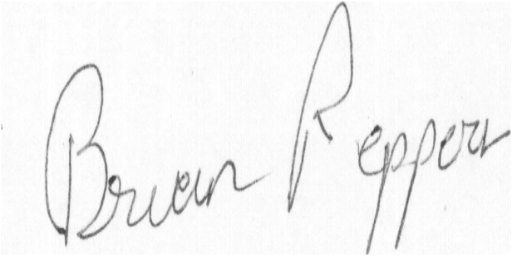 Brian Reppert